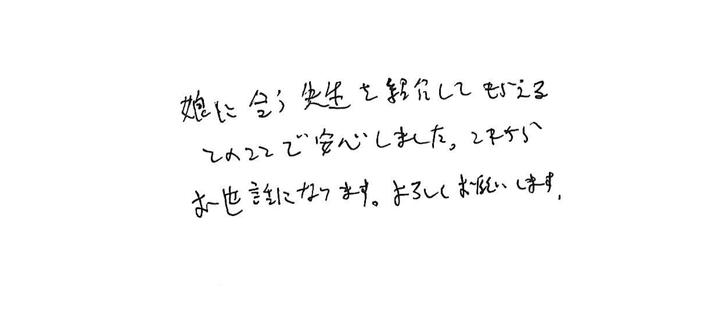 娘に合う先生を紹介してもらえる
とのことで安心しました。これから
お世話になります。よろしくお願いします。